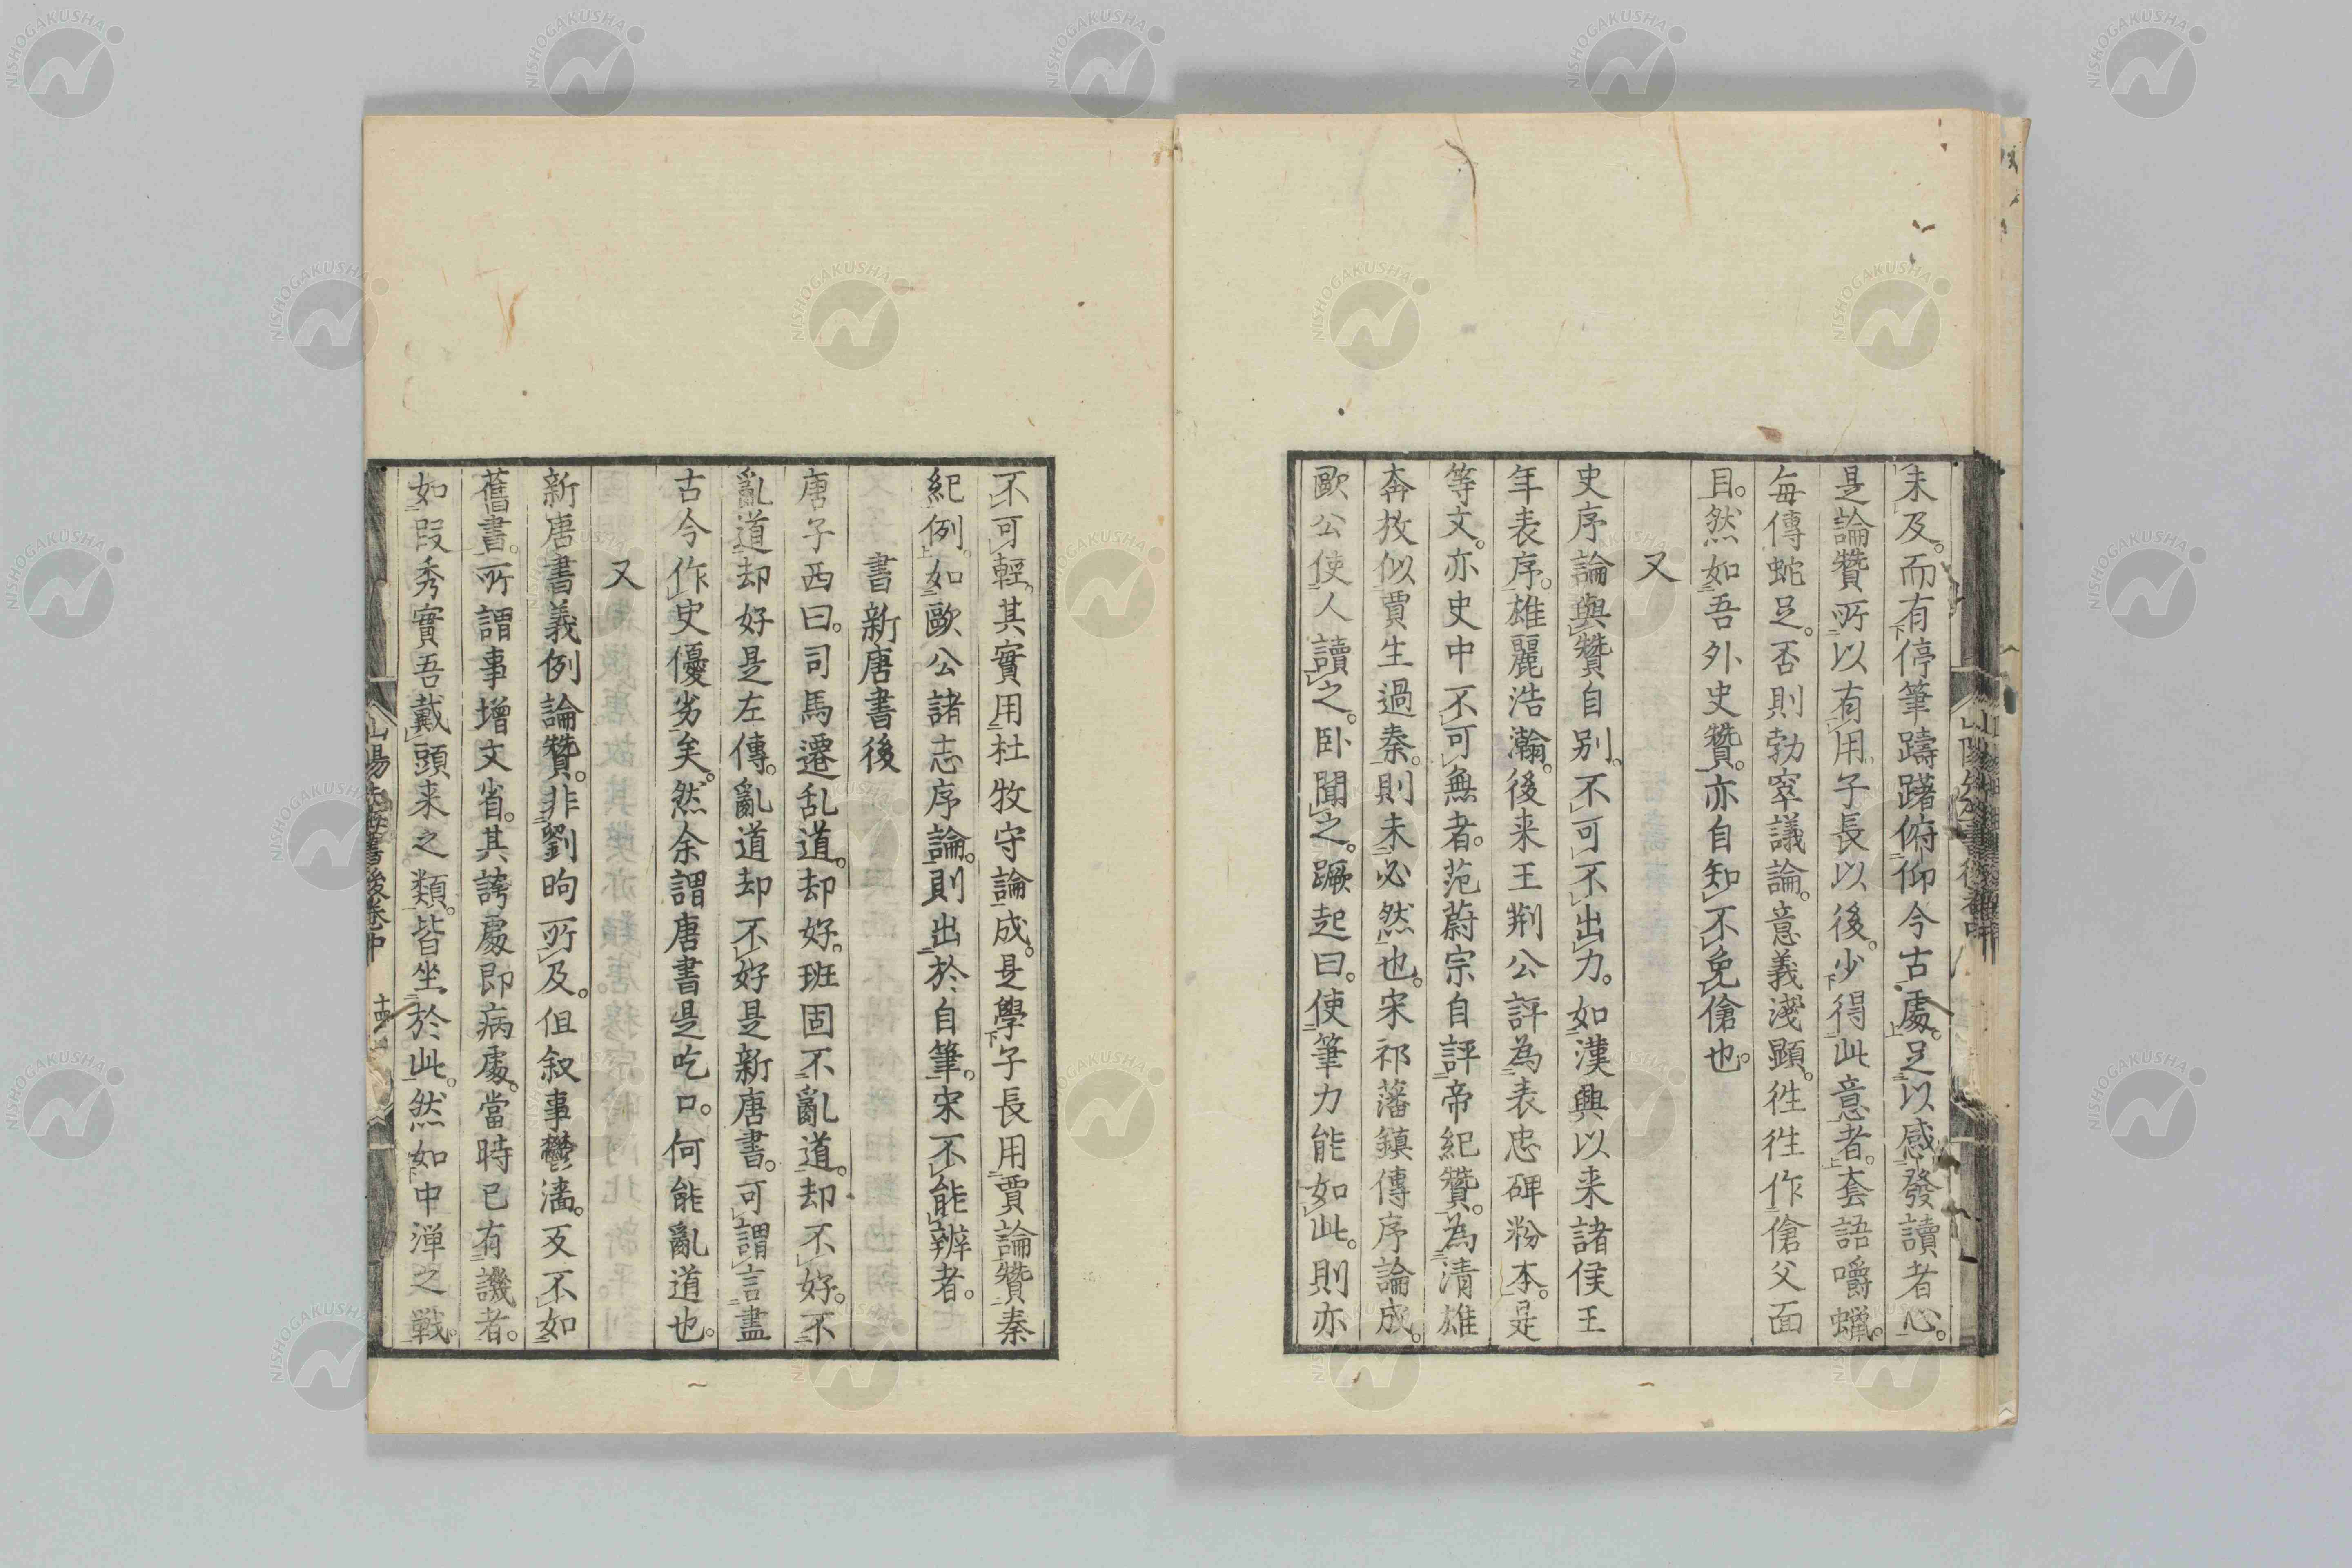 未及。而有停筆躊躇俯仰今古處。足以感發讀者心。
是論贊所以有用。子長以後。少得此意者。套語嚼蠟。
每傳蛇足。否則勃窣議論。意義淺顕。徃徃作傖父面
目。然如吾外史贊。亦自知不免傖也。
又
史序論與贊自別。不可不出力。如漢興以来諸侯王
年表序。雄麗浩瀚。後来王荆公評為表忠碑粉本。是
等文。亦史中不可無者。范蔚宗自評帝紀贊。為清雄
奔放似賈生過秦。則未必然也。宋祁藩鎮傳序論成。
歐公使人讀之。卧聞之。蹶起曰。使筆力能如此。則亦
不可輕。其實用杜牧守論成。是學子長用賈論贊秦
紀例。如歐公諸志序論。則出於自筆。宋不能辨者。
書新唐書後
唐子西曰。司馬遷乱道。却好。班固不亂道。却不好。不
亂道却好是左傳。亂道却不好是新唐書。可謂言盡
古今作史優劣矣。然余謂唐書是吃口。何能亂道也。
又
新唐書義例論贊。非劉昫所及。但叙事鬱濇。反不如
舊書。所謂事增文省。其誇處即病處。當時已有譏者。
如叚秀實吾戴頭来之類。皆坐於此。然如中渾之戰。
山陽先生書後卷中
十四
NISHOGAKUSHA